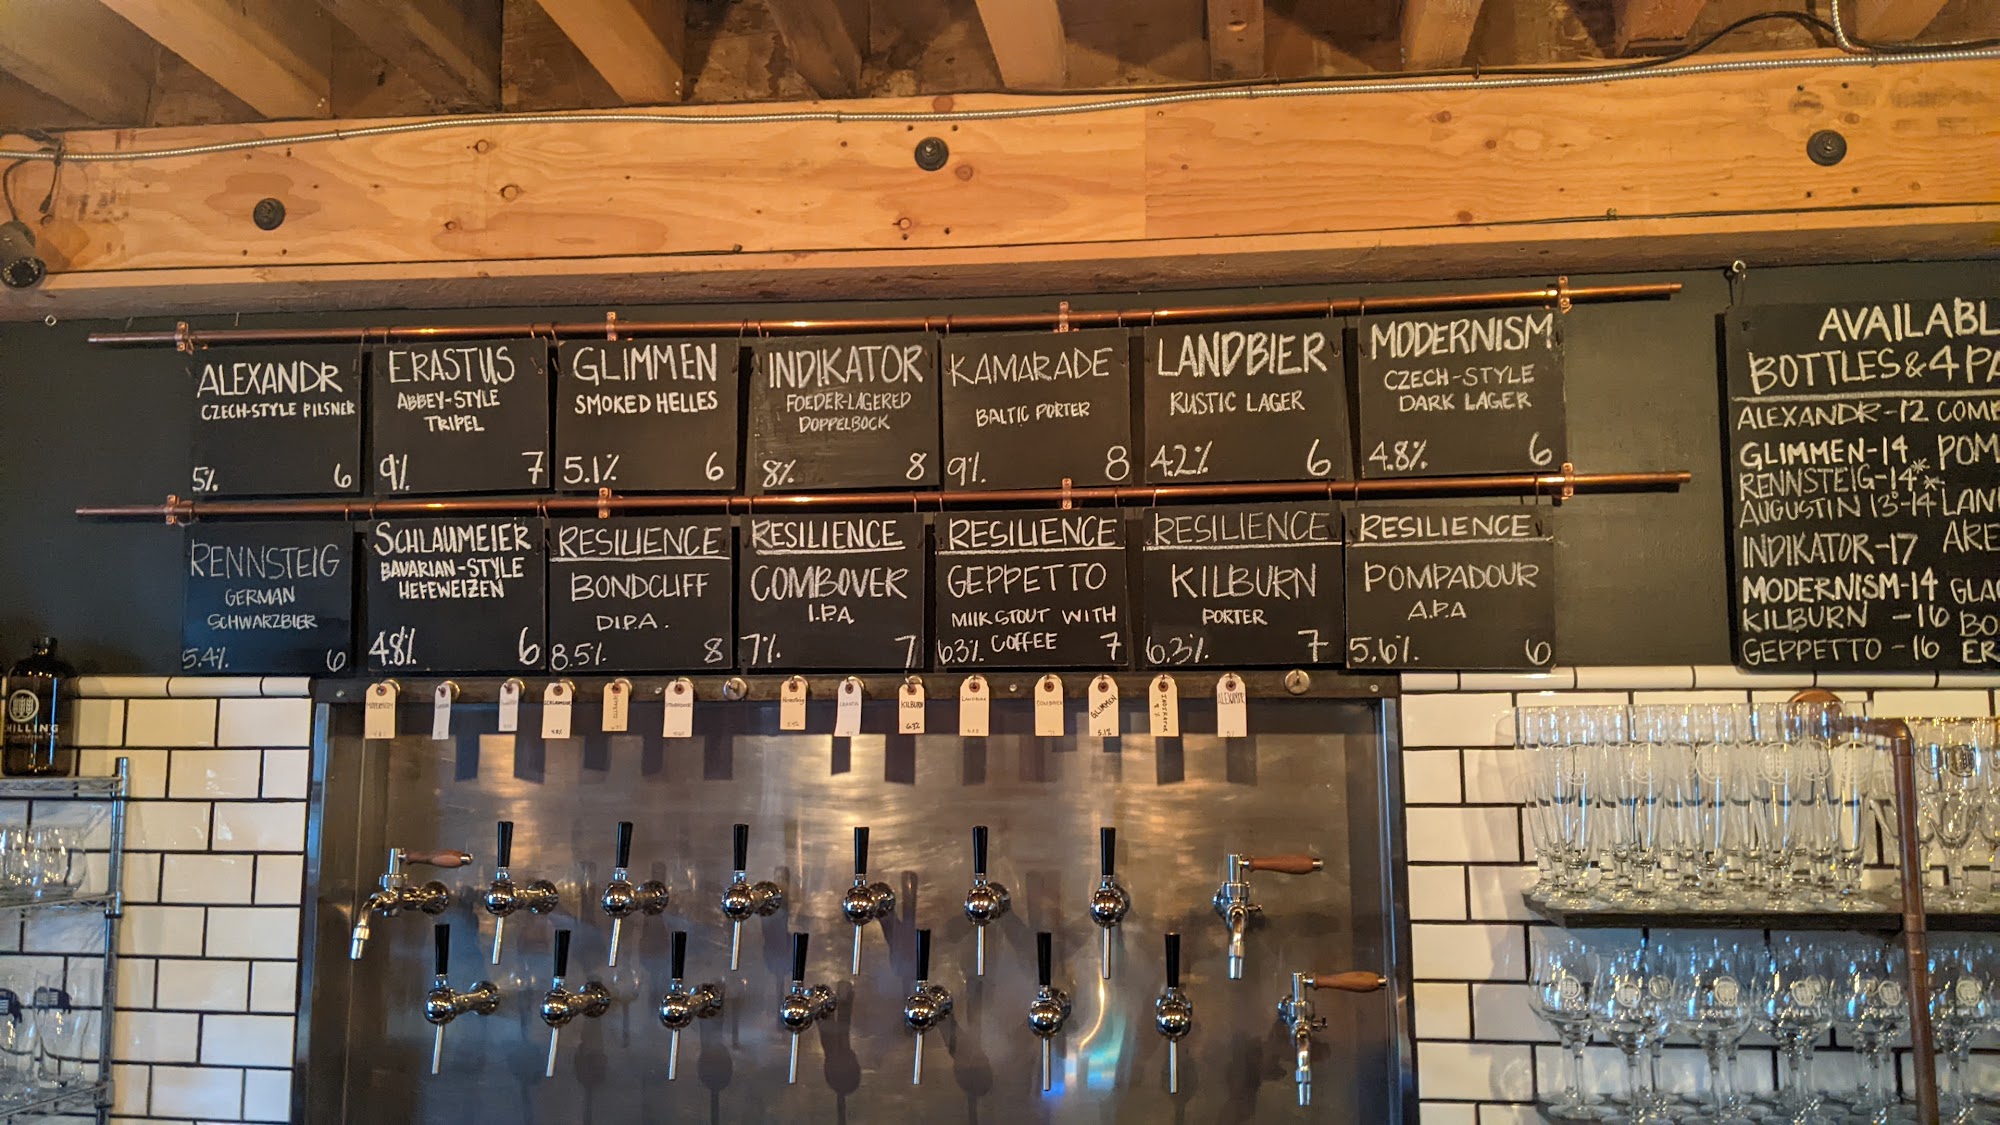 ALEXANDR
CZECH-STYLE PILSNER
5% 6
ERASTUS
ABBEY-STYLE
TRIPEL
9% 7
GLIMMEN
SMOKED HELLES
5.1% 6
INDIKATOR
FOEDER-LAGERED
DOPPELBOCK
8% 8
KAMARADE
BALTIC PORTER
9% 8
LANDBIER
RUSTIC LAGER
4.2% 6
MODERNISM
CZECH-STYLE
DARK LAGER
4.8% 6
RENNSTEIG
GERMAN
SCHWARZBIER
5.4% 6
SCHLAUMEIER
BAVARIAN-STYLE
HEFEWEIZEN
4.8% 6
RESILIENCE
BONDCLIFF
D.I.P.A.
8.5% 8
RESILIENCE
COMBOVER
I.P.A
7% 7
RESILIENCE
GEPPETTO
MILK STOUT WITH
COFFEE
6.3% 7
RESILIENCE
KILBURN
PORTER
6.3% 7
RESILIENCE
POMPADOUR
A.P.A
5.6% 6
AVAILABL
BOTTLES & 4 PA
ALEXANDR-12 COMB
GLIMMEN-14 POM
RENNSTEIG-14*
AUGUSTIN 13°-14* LAN
INDIKATOR-17 ARE
MODERNISM-14 GLA
KILBURN -16 BO
GEPPETTO -16 ER
KILBURN
6.3%
GLIMMEN
5.1%